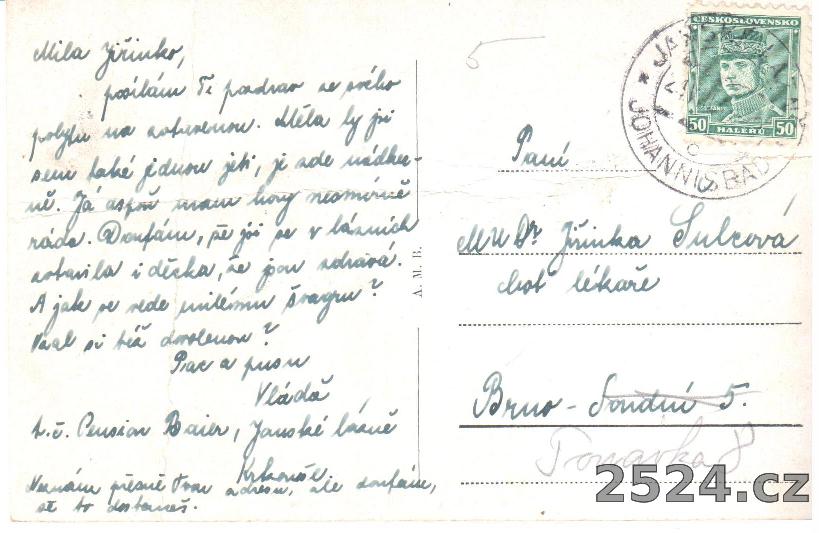 Milá Jiřinko,
posílám Ti pozdrav ze svého
pobytu na zotavenou. Měla by jsi
sem také jednou jeti, je zde nádher-
ně. Já aspoň mám hory nesmírně
ráda. Doufám, že jsi se v lázních
zotavila i děcka, že jsou zdravá.
A jak se vede milému švagru?
Vzal si též dovolenou?
Pac a pusu
Vláďa
t. č. Pension Baier, Janské lázně
Krkonoše.
Neznám přesně Tvou adresu, ale doufám,
že to dostaneš.
A. M. B.
5
ČESKOSLOVENSKO
50 HALÉŘŮ 50
JOHANNISBAD
Paní
MUDr Jiřinka Šulcová
choť lékaře
Brno - Soudní 5.
Ponávka 8
2524.cz